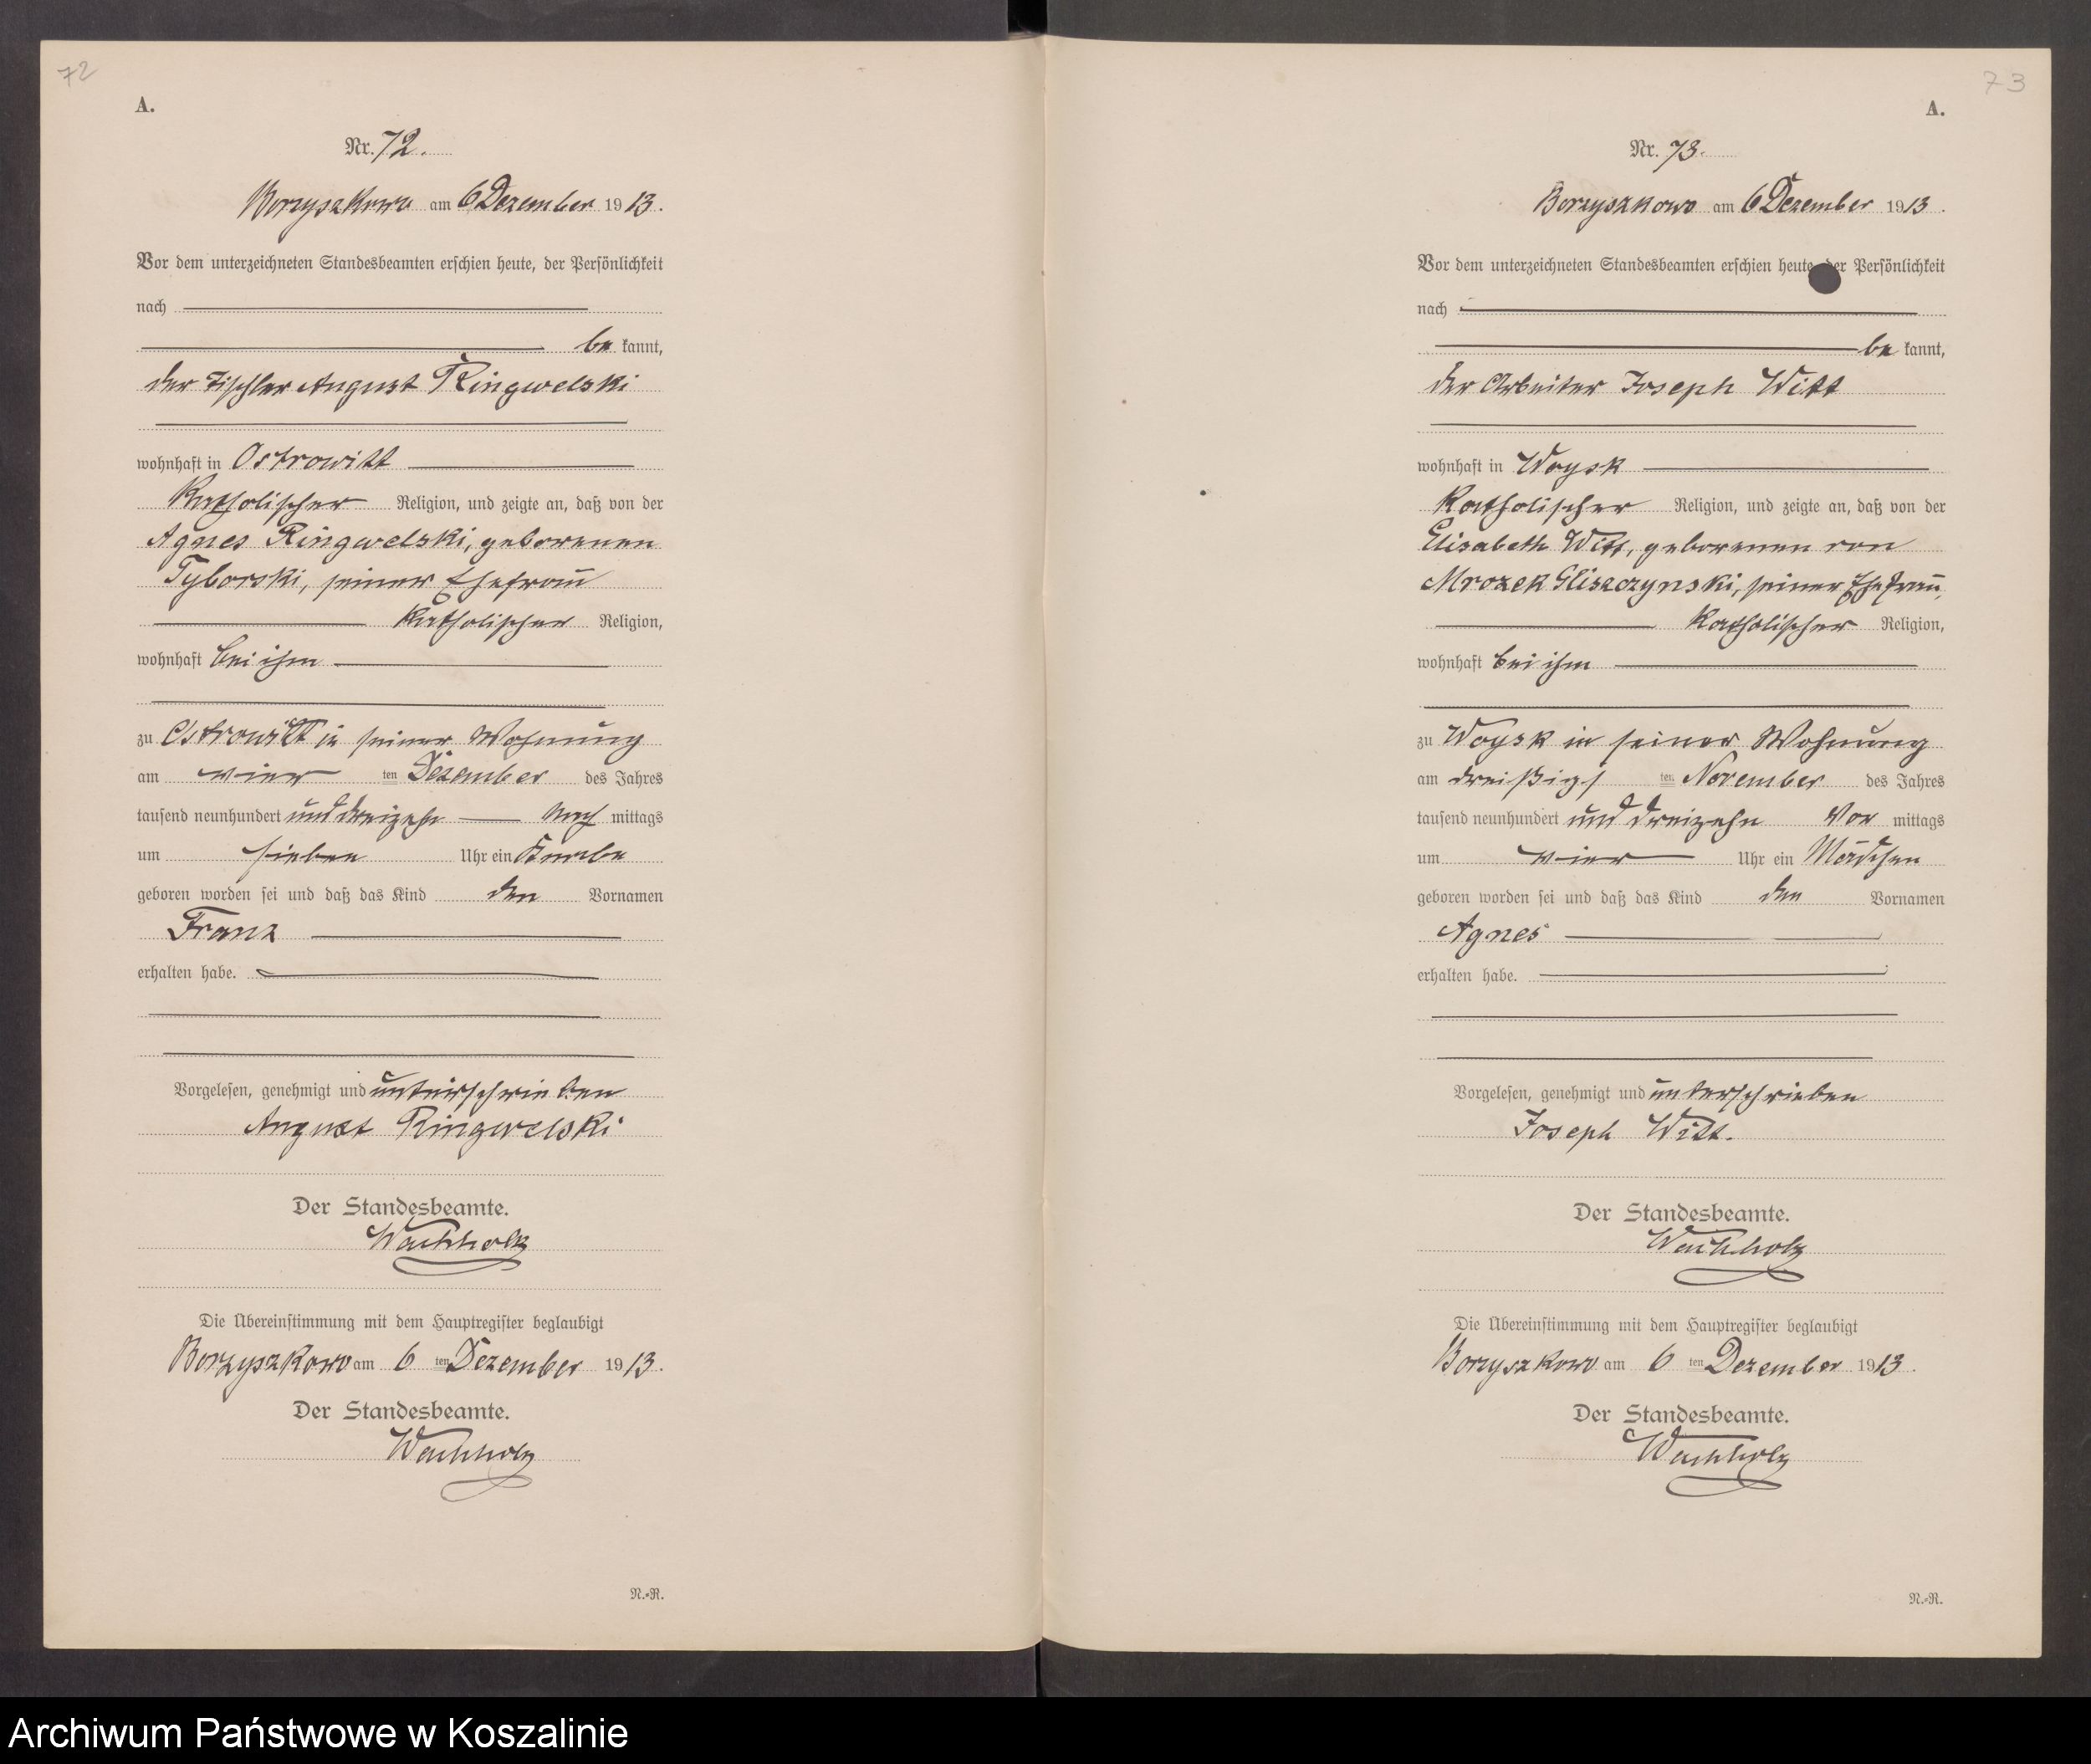 72
A.
Nr. 72.
Borzyszkowo am 6 Dezember 1913.
Vor dem unterzeichneten Standesbeamten erschien heute, der Persönlichkeit
nach
be kannt,
der Tischler August Ringwelski
wohnhaft in Ostrowitt
katholischer Religion, und zeigte an, daß von der
Agnes Ringwelski, geborenen
Tyborski, seiner Ehefrau
katholischer Religion,
wohnhaft bei ihm
zu Ostrowitt in seiner Wohnung
am vier ten Dezember des Jahres
tausend neunhundert und dreizehn Nach mittags
um sieben Uhr ein Knabe
geboren worden sei und daß das Kind den Vornamen
Franz
erhalten habe.
Vorgelesen, genehmigt und unterschrieben
August Ringwelski
Der Standesbeamte.
Wachholz
Die Übereinstimmung mit dem Hauptregister beglaubigt
Borzyszkowo am 6 ten Dezember 1913.
Der Standesbeamte.
Wachholz
N.-R.
73
A.
Nr. 73.
Borzyszkowo am 6 Dezember 1913.
Vor dem unterzeichneten Standesbeamten erschien heute, der Persönlichkeit
nach
be kannt,
der Arbeiter Joseph Witt
wohnhaft in Woysk
katholischer Religion, und zeigte an, daß von der
Elisabeth Witt, geborenen von
Mrozek Gliszczynski, seiner Ehefrau,
katholischer Religion,
wohnhaft bei ihm
zu Woysk in seiner Wohnung
am dreißigs ten November des Jahres
tausend neunhundert und dreizehn Vor mittags
um vier Uhr ein Mädchen
geboren worden sei und daß das Kind den Vornamen
Agnes
erhalten habe.
Vorgelesen, genehmigt und unterschrieben
Joseph Witt.
Der Standesbeamte.
Wachholz
Die Übereinstimmung mit dem Hauptregister beglaubigt
Borzyszkowo am 6 ten Dezember 1913.
Der Standesbeamte.
Wachholz
N.-R.
Archiwum Państwowe w Koszalinie